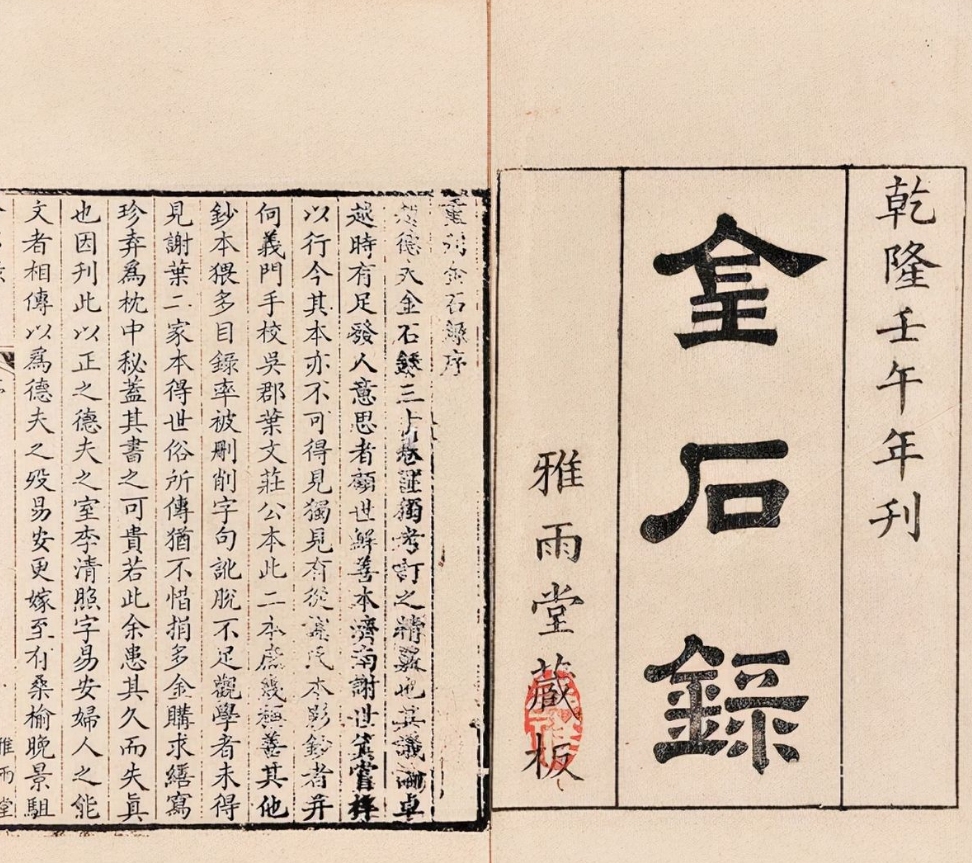 乾隆壬午年刊
金石錄
雅雨堂藏板
重刊金石錄序
趙德夫金石錄三十卷匪獨考訂之精覈也其議論卓
越時有足發人意思者顧世尠善本濟南謝世箕嘗梓
以行今其本亦不可得見獨見有從謝氏本影鈔者并
何義門手校吳郡葉文莊公本此二本庶幾稱善其他
鈔本猥多目錄率被刪削字句訛脫不足觀學者未得
見謝葉二家本得世俗所傳猶不惜捐多金購求繕寫
珍弆爲枕中秘蓋其書之可貴若此余患其久而失眞
也因刊此以正之德夫之室李清照字易安婦人之能
文者相傳以爲德夫之歿易安更嫁至有桑榆晚景駔
雅雨堂